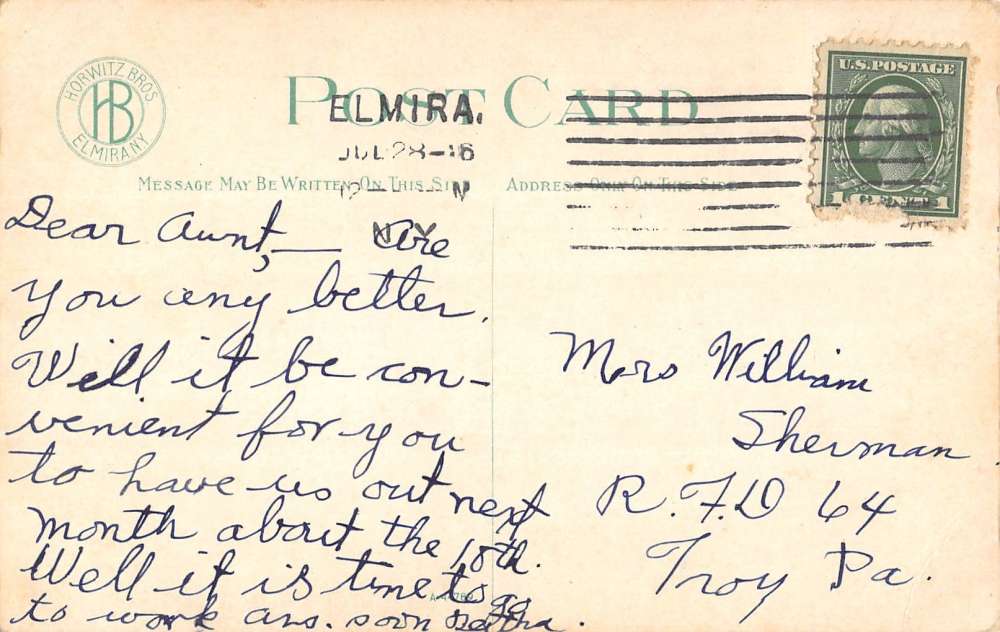 HORWITZ BROS
HB
ELMIRA NY
POST CARD
ELMIRA.
JUL 28-16
12 M
N.Y.
MESSAGE MAY BE WRITTEN ON THIS SIDE
ADDRESS ONLY ON THIS SIDE
U.S. POSTAGE
1 CENT 1
Dear Aunt, — Are
you any better.
Will it be con-
venient for you
to have us out next
month about the 18th.
Well it is time to go
to work ans. soon
Mrs William
Sherman
R.F.D 64
Troy Pa.